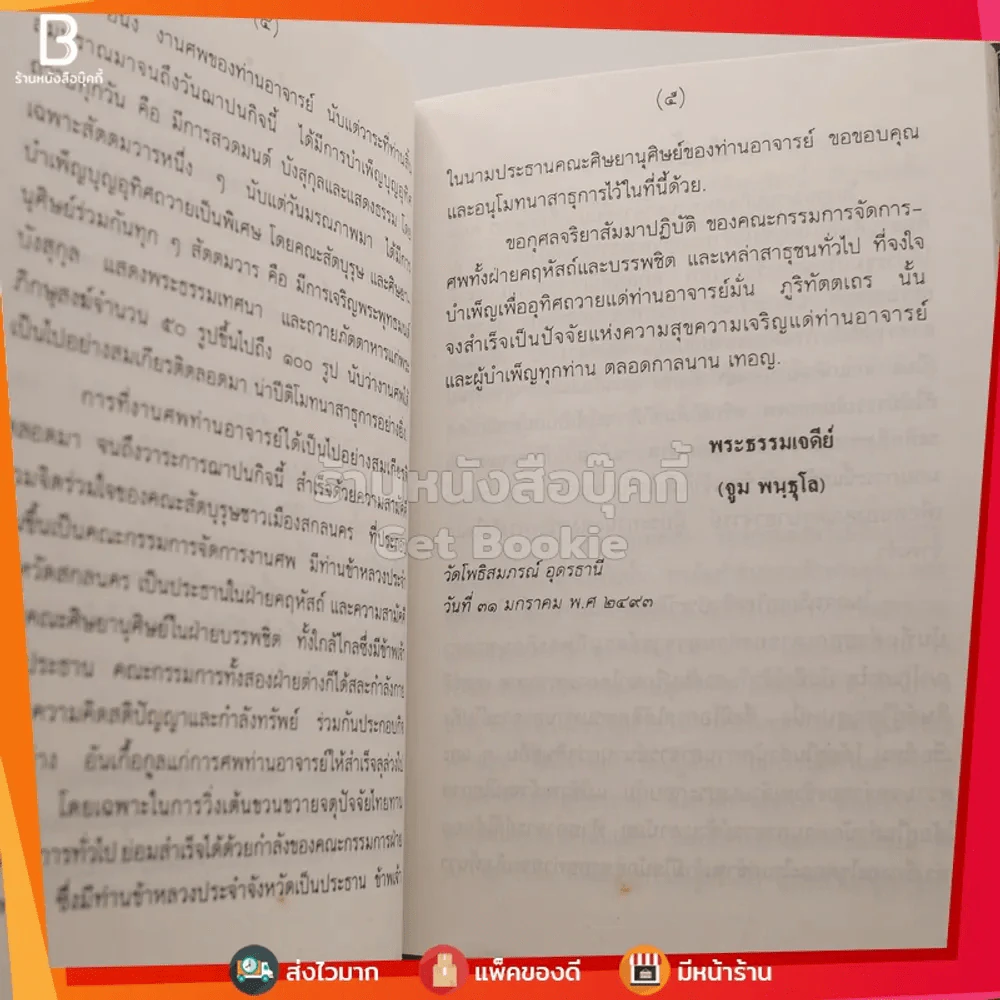 B
ร้านหนังสือบุ๊คกี้
(๔)
งานศพของท่านอาจารย์ นับแต่วาระที่ท่านสิ้น
มาจนถึงวันฌาปนกิจนี้ ได้มีการบำเพ็ญบุญอุทิศ
ทุกวัน คือ มีการสวดมนต์ บังสุกุลและแสดงธรรม โดย
เฉพาะสัตตมวารหนึ่ง ๆ นับแต่วันมรณภาพมา ได้มีการ
บำเพ็ญบุญอุทิศถวายเป็นพิเศษ โดยคณะสัตบุรุษ และศิษยา
นุศิษย์ร่วมกันทุก ๆ สัตตมวาร คือ มีการเจริญพระพุทธมนต์
บังสุกุล แสดงพระธรรมเทศนา และถวายภัตตาหารแก่พระ
ภิกษุสงฆ์จำนวน ๕๐ รูปขึ้นไปถึง ๑๐๐ รูป นับว่างานศพได้
เป็นไปอย่างสมเกียรติตลอดมา น่าปีติโมทนาสาธุการอย่างยิ่ง
การที่งานศพท่านอาจารย์ได้เป็นไปอย่างสมเกียรติ
ตลอดมา จนถึงวาระการฌาปนกิจนี้ สำเร็จด้วยความสามัคคี
ร่วมจิตร่วมใจของคณะสัตบุรุษชาวเมืองสกลนคร ที่ประชุม
ขึ้นเป็นคณะกรรมการจัดการงานศพ มีท่านข้าหลวงประจำ
จังหวัดสกลนคร เป็นประธานในฝ่ายคฤหัสถ์ และความสามัคคี
คณะศิษยานุศิษย์ในฝ่ายบรรพชิต ทั้งใกล้ไกลซึ่งมีข้าพเจ้า
ประธาน คณะกรรมการทั้งสองฝ่ายต่างก็ได้สละกำลังกาย
ความคิดสติปัญญาและกำลังทรัพย์ ร่วมกันประกอบกิจ
อันเกื้อกูลแก่การศพท่านอาจารย์ให้สำเร็จลุล่วงไป
โดยเฉพาะในการวิ่งเต้นขวนขวายจตุปัจจัยไทยทาน
การทั่วไป ย่อมสำเร็จได้ด้วยกำลังของคณะกรรมการฝ่าย
ซึ่งมีท่านข้าหลวงประจำจังหวัดเป็นประธาน ข้าพเจ้า
(๕)
ในนามประธานคณะศิษยานุศิษย์ของท่านอาจารย์ ขอขอบคุณ
และอนุโมทนาสาธุการไว้ในที่นี้ด้วย.
ขอกุศลจริยาสัมมาปฏิบัติ ของคณะกรรมการจัดการ-
ศพทั้งฝ่ายคฤหัสถ์และบรรพชิต และเหล่าสาธุชนทั่วไป ที่จงใจ
บำเพ็ญเพื่ออุทิศถวายแด่ท่านอาจารย์มั่น ภูริทัตตเถร นั้น
จงสำเร็จเป็นปัจจัยแห่งความสุขความเจริญแด่ท่านอาจารย์
และผู้บำเพ็ญทุกท่าน ตลอดกาลนาน เทอญ.
พระธรรมเจดีย์
(จูม พนฺธุโล)
วัดโพธิสมภรณ์ อุดรธานี
วันที่ ๓๑ มกราคม พ.ศ ๒๔๙๓
ร้านหนังสือบุ๊คกี้
Get Bookie
ส่งไวมาก
แพ็คของดี
มีหน้าร้าน